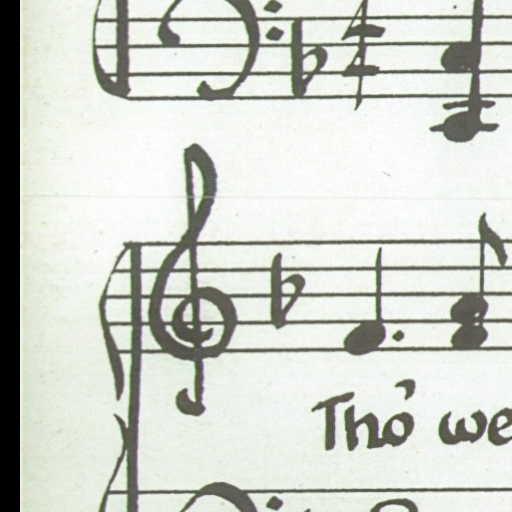 Tho' we